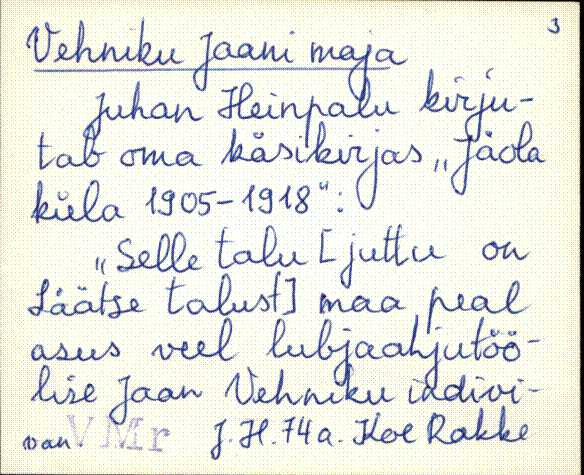 3
Vehniku Jaani maja
Juhan Heinpalu kirju-
tab oma käsikirjas „Jäola
küla 1905-1918":
„Selle talu [juttu on
Säätse talust] maa peal
asus veel lubjaahjutöö-
lise Jaan Vehniku indivi-
van VMr J.H.74a. Koe Rakke